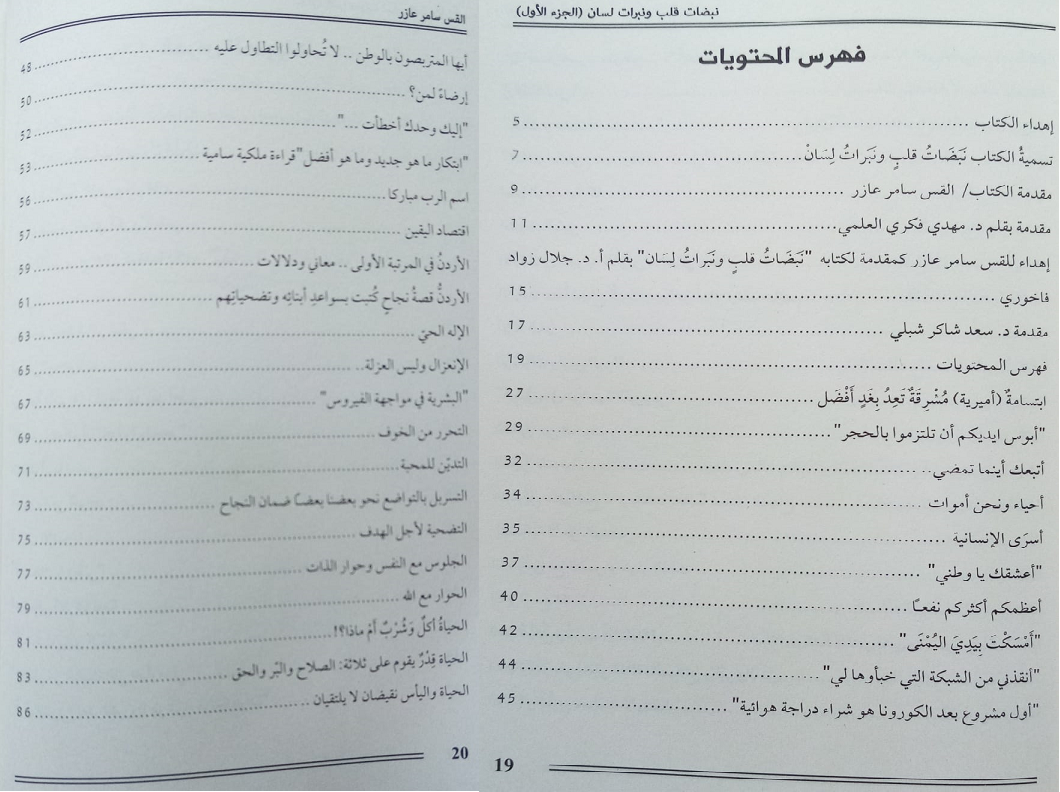 نبضات قلب ونبرات لسان (الجزء الأول)
فهرس المحتويات
إهداء الكتاب ........ 5
تسميةُ الكتاب نَبَضَاتُ قلبٍ ونَبَراتُ لِسَانْ ........ 7
مقدمة الكتاب/ القس سامر عازر ........ 9
مقدمة بقلم د. مهدي فكري العلمي ........ 11
إهداء للقس سامر عازر كمقدمة لكتابه "نَبَضَاتُ قلبٍ ونَبَراتُ لِسَان" بقلم أ. د. جلال زواد
فاخوري ........ 15
مقدمة د. سعد شاكر شبلي ........ 17
فهرس المحتويات ........ 19
ابتسامةٌ (أميرية) مُشْرِقَةٌ تَعِدُ بِغَدٍ أَفْضَل ........ 27
"أبوس ايديكم أن تلتزموا بالحجر" ........ 29
أتبعك أينما تمضي ........ 32
أحياء ونحن أموات ........ 34
أسرَى الإنسانية ........ 35
"أعشقك يا وطني" ........ 37
أعظمكم أكثركم نفعـًا ........ 40
"أَمْسَكْتَ بِيَدِيَ اليُمْنَى" ........ 42
"أنقذني من الشبكة التي خبأوها لي" ........ 44
"أول مشروع بعد الكورونا هو شراء دراجة هوائية" ........ 45
19
القس سامر عازر
أيها المتربصون بالوطن .. لا تُحاولوا التطاول عليه ........ 48
إرضاءً لمن؟ ........ 50
"إليك وحدك أخطأت ..." ........ 52
"ابتكار ما هو جديد وما هو أفضل" قراءة ملكية سامية ........ 53
اسم الرب مباركا ........ 56
اقتصاد اليقين ........ 57
الأردنُ في المرتبة الأولى .. معاني ودلالات ........ 59
الأردنُّ قصةُ نجاحٍ كُتبت بسواعدِ أبنائِه وتضحياتِهم ........ 61
الإله الحيّ ........ 63
الإنعزال وليس العزلة ........ 65
"البشرية في مواجهة الفيروس" ........ 67
التحرر من الخوف ........ 69
التديّن للمحبة ........ 71
التسربل بالتواضع نحو بعضنا بعضـًا ضمان النجاح ........ 73
التضحية لأجل الهدف ........ 75
الجلوس مع النفس وحوار الذات ........ 77
الحوار مع الله ........ 79
الحياةُ أكلٌ وَشُرْبٌ أمْ ماذا؟! ........ 81
الحياة قِدْرٌ يقوم على ثلاثة: الصلاح والبّر والحق ........ 83
الحياة واليأس نقيضان لا يلتقيان ........ 86
20